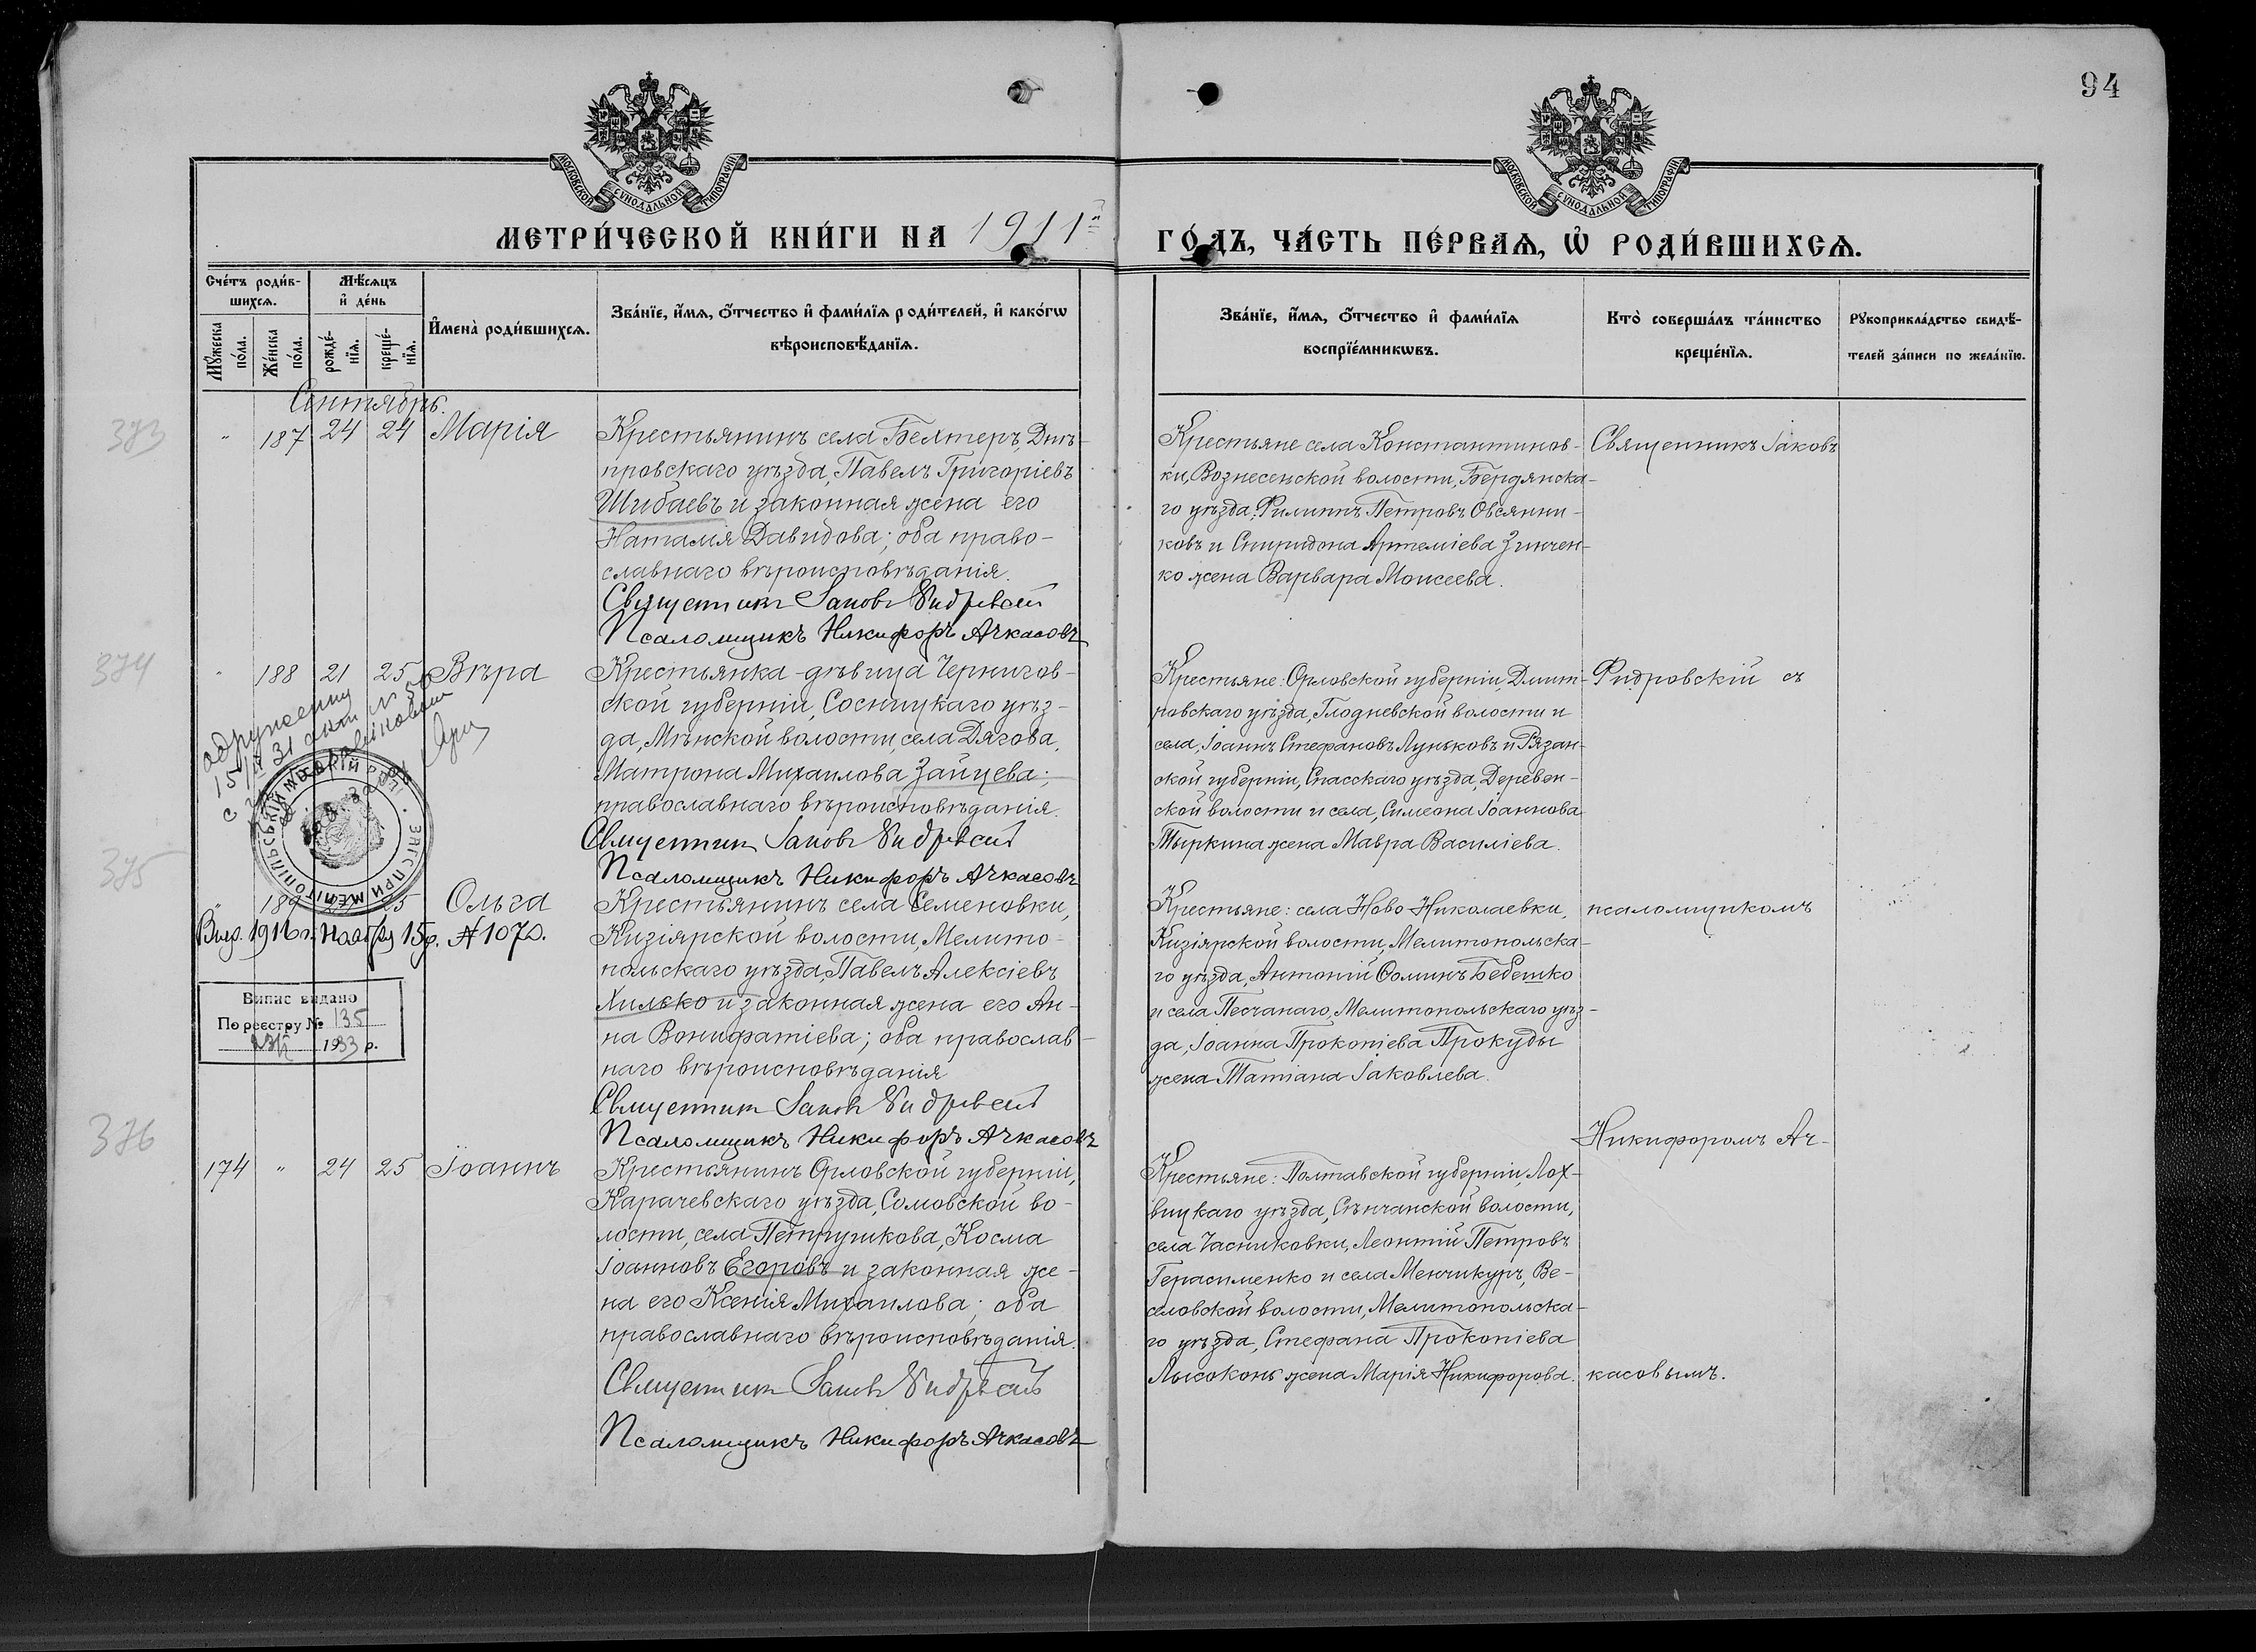 94
МОСКОВСКОЙ СУНОДАЛЬНОЙ ТИПОГРАФІИ
МОСКОВСКОЙ СУНОДАЛЬНОЙ ТИПОГРАФІИ
МЕТРИ́ЧЕСКОЙ КНИ́ГИ НА 1911й
ГО́ДЪ, ЧА́СТЬ ПЕ́РВАѦ, Ѡ҆ РОДИ́ВШИХСѦ.
Сче́тъ роди́в-
шихсѧ.
Мѣ́сѧцъ
и҆ де́нь
Мꙋ́жеска
по́ла.
Же́нска
по́ла.
рожде́-
нїѧ.
креще́-
нїѧ.
И҆мена̀ роди́вшихсѧ.
Зва́нїе, и҆́мѧ, ѻ҆́тчество и҆ фами́лїѧ роди́телей, и҆ како́гѡ
вѣроисповѣ́данїѧ.
Зва́нїе, и҆́мѧ, ѻ҆́тчество и҆ фами́лїѧ
воспрїе́мникѡвъ.
Кто̀ соверша́лъ та́инство
креще́нїѧ.
Рꙋкоприкла́дство свидѣ́-
телей за́писи по жела́нїю.
Сентябрь.
373
" 187 24 24 Марія
Крестьянинъ села Бехтеръ, Днѣ-
провскаго уѣзда, Павелъ Григоріевъ
Шибаевъ и законная жена его
Наталія Давидова; оба право-
славнаго вѣроисповѣданія.
Священникъ Іаковъ
Псаломщикъ Никифоръ Ачкасовъ
Крестьяне села Константинов-
ки, Вознесенской волости, Бердянска-
го уѣзда: Филиппъ Петровъ Овсянни-
ковъ и Спиридона Артеміева Зинчен-
ко жена Варвара Моисеева.
Священникъ Іаковъ
374
" 188 21 25 Вѣра
Крестьянка-дѣвица Чернигов-
ской губерніи, Сосницкаго уѣз-
да, Мѣнской волости, села Дягова,
Матрона Михаилова Зайцева;
православнаго вѣроисповѣданія.
Священник Іаковъ
Псаломщикъ Никифоръ Ачкасовъ
Крестьяне: Орловской губерніи, Дмит-
ровскаго уѣзда, Глодневской волости и
села, Іоаннъ Стефановъ Луньковъ и Рязан-
ской губерніи, Спасскаго уѣзда, Деревен-
ской волости и села, Симеона Іоаннова
Тыркина жена Мавра Василіева.
Фидровскій съ
одружения
375
" 189 25 Ольга
Выд. 1916 г. Ноября 15 д. № 1070.
Випис видано
По реєстру № 135
1933 р.
Крестьянинъ села Семеновки,
Кизіярской волости, Мелито-
польскаго уѣзда, Павелъ Алексіевъ
Хилько и законная жена его Ан-
на Вонифатіева; оба православ-
наго вѣроисповѣданія
Священник Іаковъ
Псаломщикъ Никифоръ Ачкасовъ
Крестьяне: села Ново-Николаевки,
Кизіярской волости, Мелитопольска-
го уѣзда, Антоній Ѳоминъ Бебешко
и села Песчанаго, Мелитопольскаго уѣз-
да, Іоанна Прокопіева Прокуды
жена Татіана Іаковлева.
псаломщикомъ
Никифоромъ Ач-
376
174 " 24 25 Іоаннъ
Крестьянинъ Орловской губерніи,
Карачевскаго уѣзда, Сомовской во-
лости, села Петрушкова, Косма
Іоанновъ Егоровъ и законная же-
на его Ксенія Михаилова; оба
православнаго вѣроисповѣданія.
Священник Іаковъ
Псаломщикъ Никифоръ Ачкасовъ
Крестьяне: Полтавской губерніи, Лох-
вицкаго уѣзда, Сѣнчанской волости,
села Часниковки, Леонтій Петровъ
Герасименко и села Менчикуръ, Ве-
селовской волости, Мелитопольска-
го уѣзда, Стефана Прокопіева
Лысоконь жена Марія Никифорова.
касовымъ.